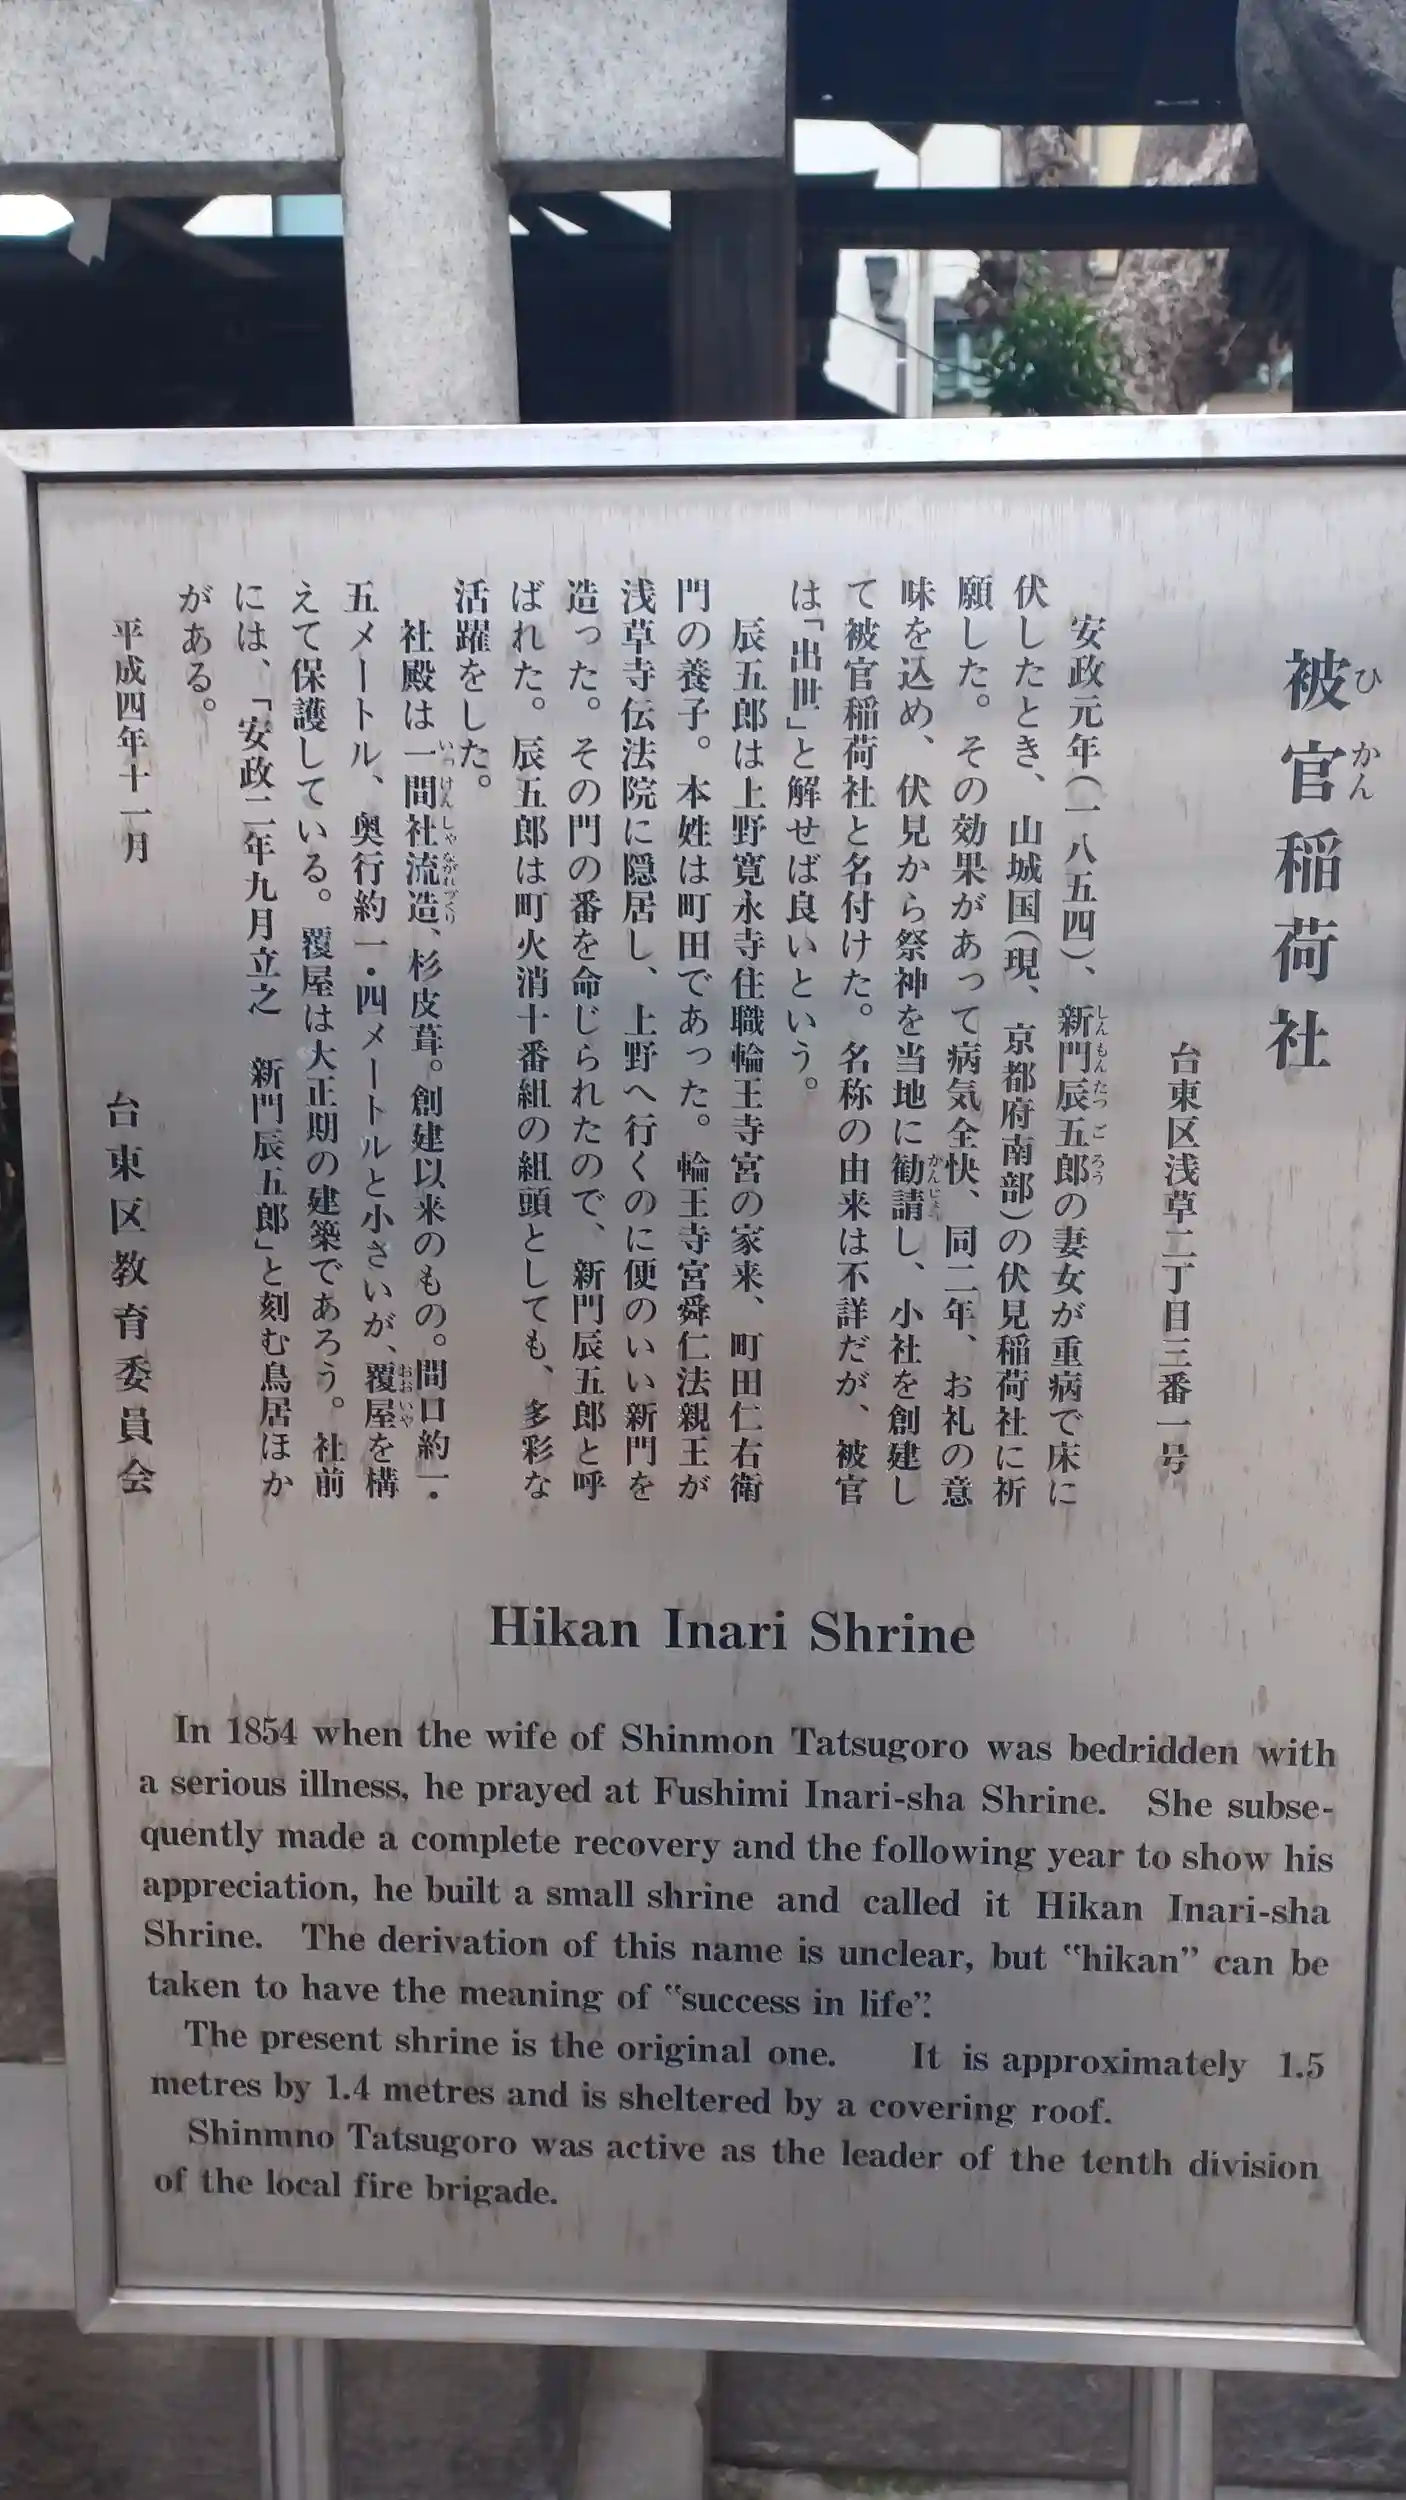 被官稲荷社
ひかん
台東区浅草二丁目三番一号
安政元年(一八五四)、新門辰五郎の妻女が重病で床に
しんもんたつごろう
伏したとき、山城国(現、京都府南部)の伏見稲荷社に祈
願した。その効果があって病気全快、同二年、お礼の意
味を込め、伏見から祭神を当地に勧請し、小社を創建し
かんじょう
て被官稲荷社と名付けた。名称の由来は不詳だが、被官
は「出世」と解せば良いという。
辰五郎は上野寛永寺住職輪王寺宮の家来、町田仁右衛
門の養子。本姓は町田であった。輪王寺宮舜仁法親王が
浅草寺伝法院に隠居し、上野へ行くのに便のいい新門を
造った。その門の番を命じられたので、新門辰五郎と呼
ばれた。辰五郎は町火消十番組の組頭としても、多彩な
活躍をした。
社殿は一間社流造、杉皮葺。創建以来のもの。間口約一・
いっけんしゃながれづくり
五メートル、奥行約一・四メートルと小さいが、覆屋を構
おおいや
えて保護している。覆屋は大正期の建築であろう。社前
には、「安政二年九月立之 新門辰五郎」と刻む鳥居ほか
がある。
平成四年十一月
台東区教育委員会
Hikan Inari Shrine
In 1854 when the wife of Shinmon Tatsugoro was bedridden with
a serious illness, he prayed at Fushimi Inari-sha Shrine. She subse-
quently made a complete recovery and the following year to show his
appreciation, he built a small shrine and called it Hikan Inari-sha
Shrine. The derivation of this name is unclear, but "hikan" can be
taken to have the meaning of "success in life".
The present shrine is the original one. It is approximately 1.5
metres by 1.4 metres and is sheltered by a covering roof.
Shinmno Tatsugoro was active as the leader of the tenth division
of the local fire brigade.